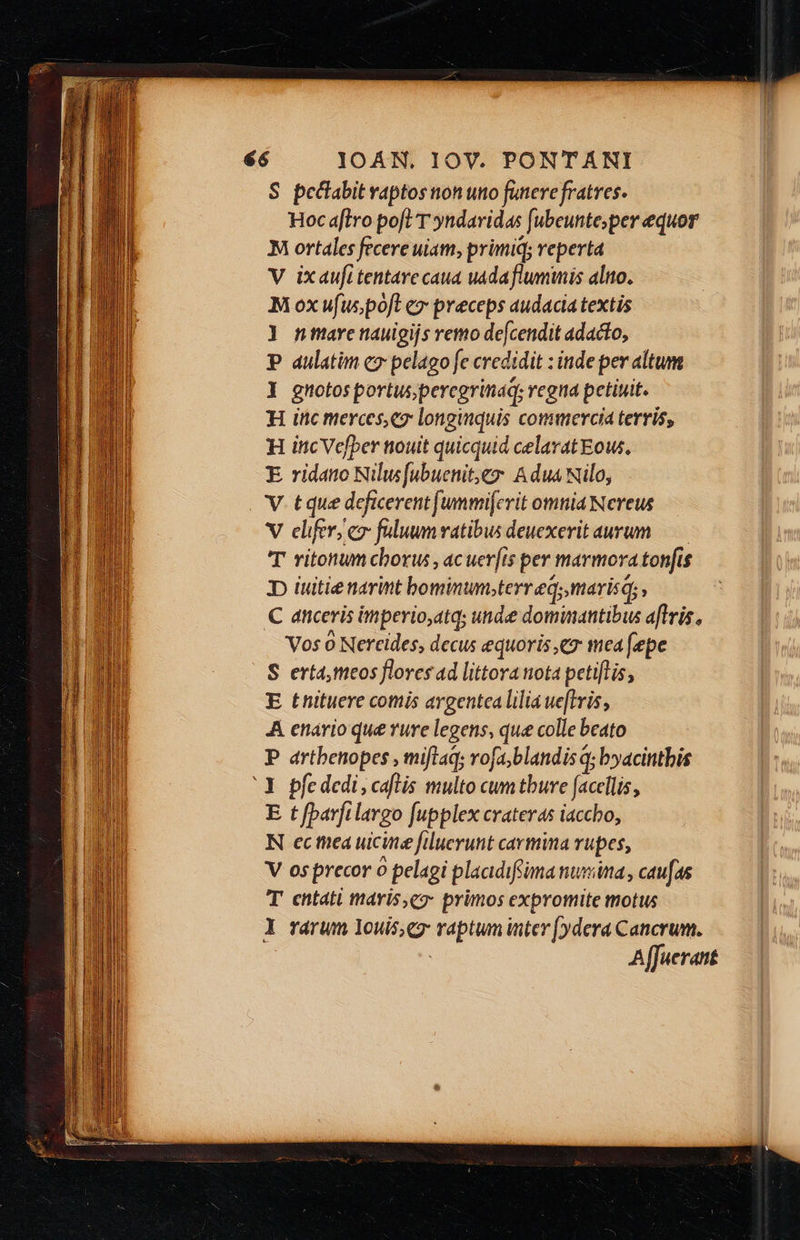 66 IOAN. IOV. PONTANI
S pectabit raptos non uno funere fratres.
Hoc aſtro poſt Tyndaridas ſubeunte, per æquor
M ortales fecere uiam, primiq; reperta
V ix auſi tentare caua uada fluminis alno.
M ox uſus, pòſt & præceps audacia textis
I n mare nauigijs remo deſcendit adacto,
P aulatim & pelago ſe credidit : inde per altum
I gnotos portus, peregrinaq; regna petiuit.
H inc merces, & longinquis commercia terris,
H inc Veſper nouit quicquid celarat Eous,
E ridano Nilus ſubuenit, & Adua Nilo,
V t quæ deficerent ſummiſerit omnia Nereus
V eliſer, & fuluum ratibus deuexerit aurum
T ritonum chorus, ac uerſis per marmora tonſis
D iuitiæ narint hominum, terræq;, marisq;,
C anceris imperio, atq; undæ dominantibus aſtris.
Vos ò Nereides, decus æquoris, & mea ſæpe
S erta, meos flores ad littora nota petiſtis,
E t nituere comis argentea lilia ueſtris,
A enario quæ rure legens, quæ colle beato
P arthenopes, miſtaq; roſa, blandisq; hyacinthis
I pſe dedi, caſtis multo cum thure ſacellis,
E t ſparſi largo ſupplex crateras iaccho,
N ec mea uicinæ ſiluerunt carmina rupes,
V os precor ò pelagi placidiſsima numina, cauſas
T entati maris, & primos expromite motus
I rarum Iouis, & raptum inter ſydera Cancrum.
Aſſuerant